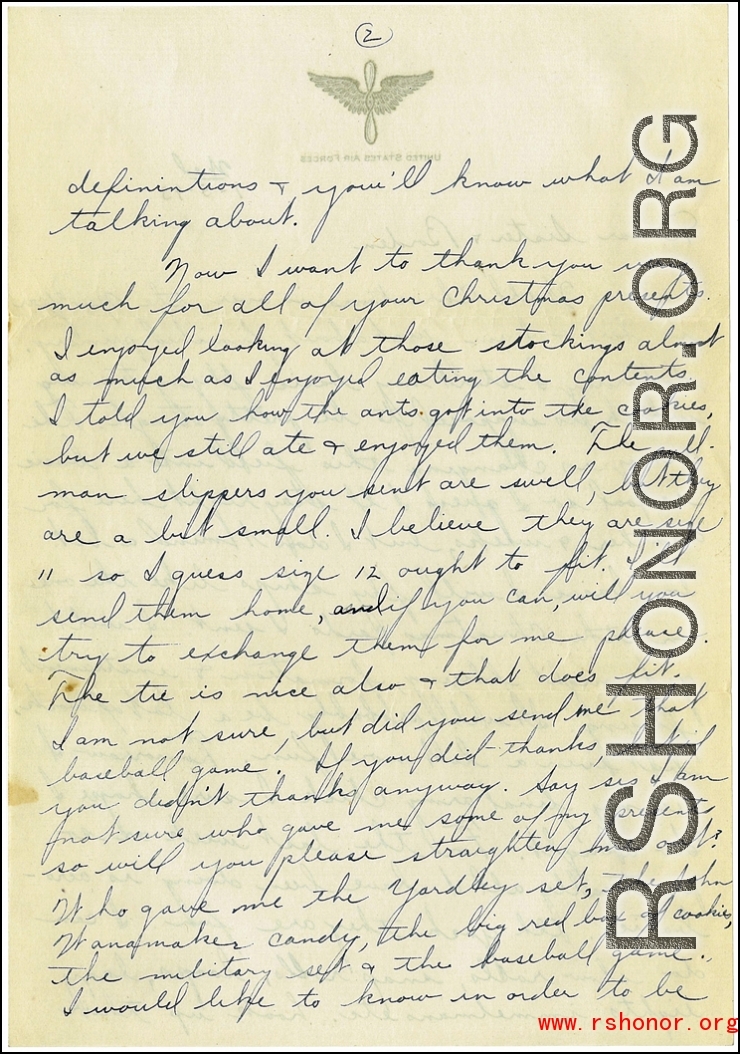 2
UNITED STATES AIR FORCES
definintions & you'll know what I am
talking about.
Now I want to thank you
much for all of your Christmas presents.
I enjoyed looking at those stockings almost
as much as I enjoyed eating the contents.
I told you how the ants got into the cookies,
but we still ate & enjoyed them. The
man slippers you sent are swell, but they
are a bit small. I believe they are size
11 so I guess size 12 ought to fit. I'll
send them home, and if you can, will you
try to exchange them for me please.
The tie is nice also & that does fit.
I am not sure, but did you send me that
baseball game. If you did thanks, & if
you didn't thanks anyway. Say sis I am
not sure who gave me some of my presents
so will you please straighten me out?
Who gave me the Yardley set, the John
Wanamaker candy, the big red box of cookies,
the military set & the baseball game.
I would like to know in order to be
RSHONOR.ORG
www.rshonor.org